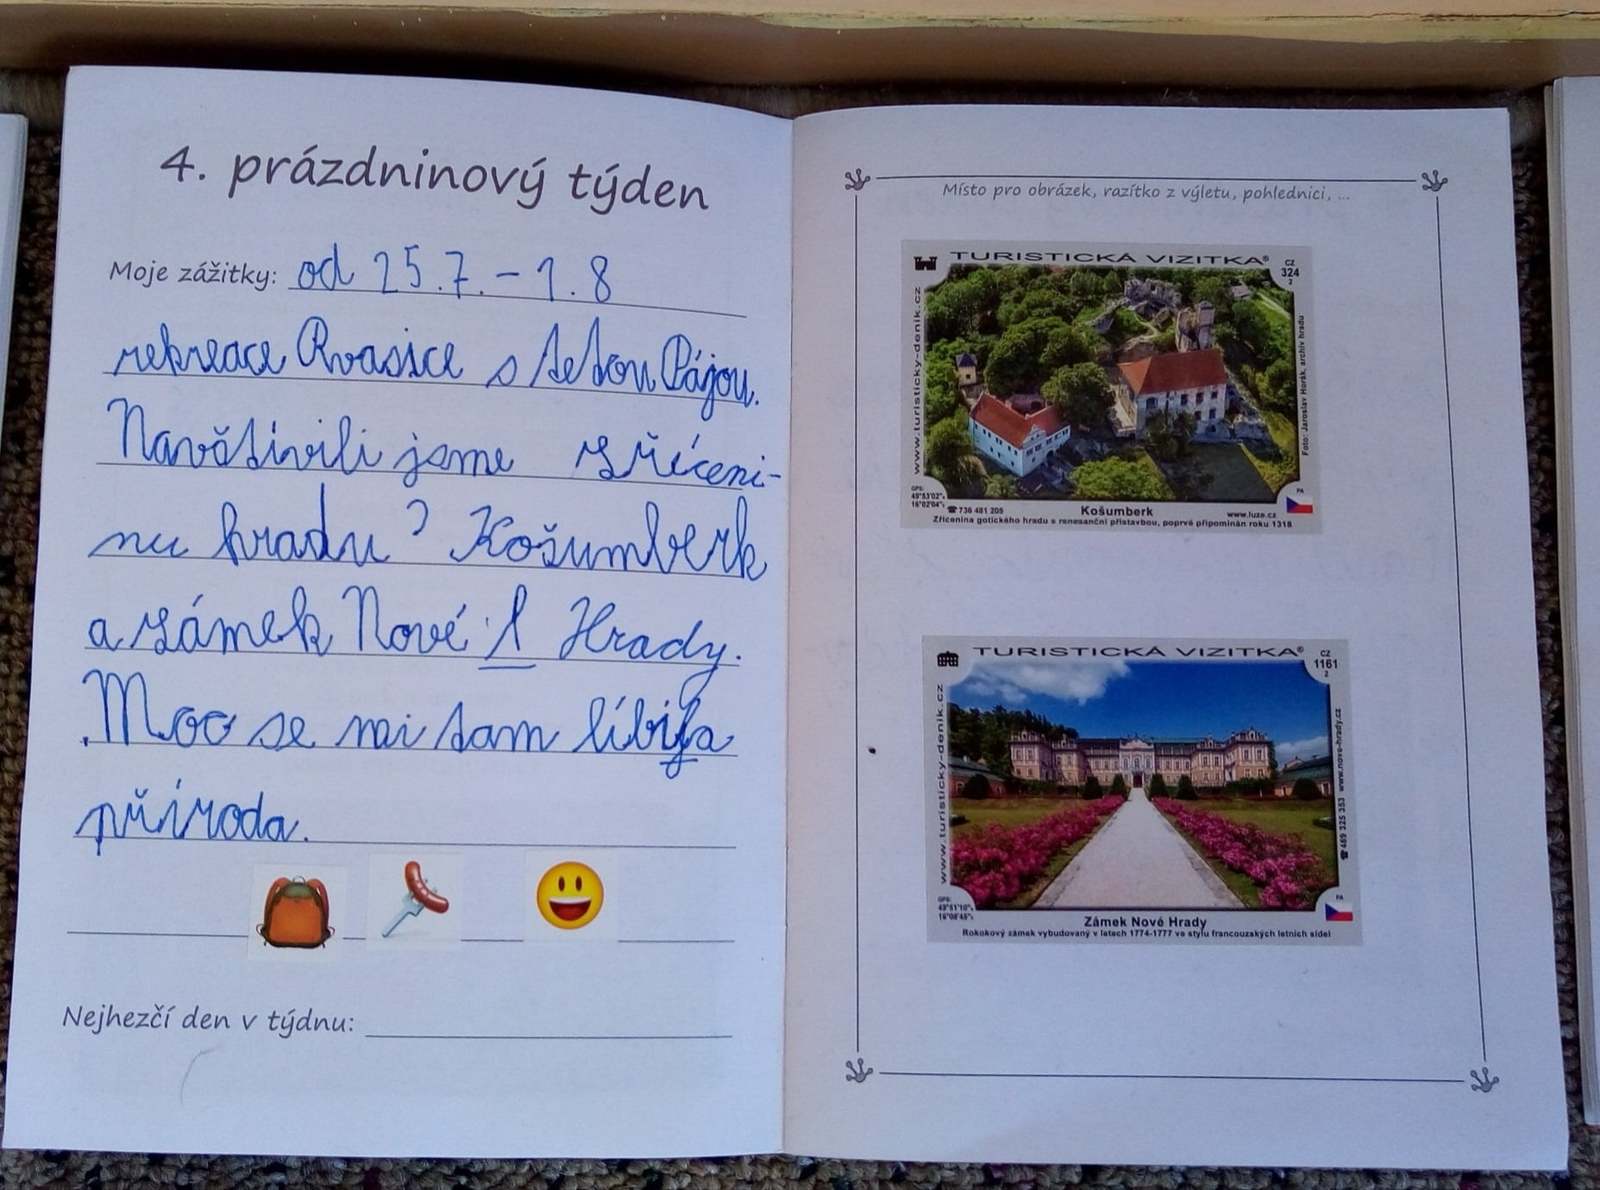 4. prázdninový týden
Moje zážitky: od 25.7. - 1.8
rekreace Rvasice s tetou Pájou.
Navštívili jsme zříceni-
nu hradu ? Košumberk
a zámek Nové Hrady.
Moc se mi tam líbila
příroda.
Nejhezčí den v týdnu:
Místo pro obrázek, razítko z výletu, pohlednici, ...
TURISTICKÁ VIZITKA®
CZ
324
2
www.turisticky-denik.cz
Foto: Jaroslav Horák, archiv hradu
GPS:
49°53'02"
16°02'04"
☎ 736 481 205
Košumberk
www.luze.cz
PA
Zřícenina gotického hradu s renesanční přístavbou, poprvé připomínán roku 1318
TURISTICKÁ VIZITKA®
CZ
1161
2
www.turisticky-denik.cz
☎ 469 325 353 www.nove-hrady.cz
GPS:
49°51'10"
16°08'45"
PA
Zámek Nové Hrady
Rokokový zámek vybudovaný v letech 1774-1777 ve stylu francouzských letních sídel